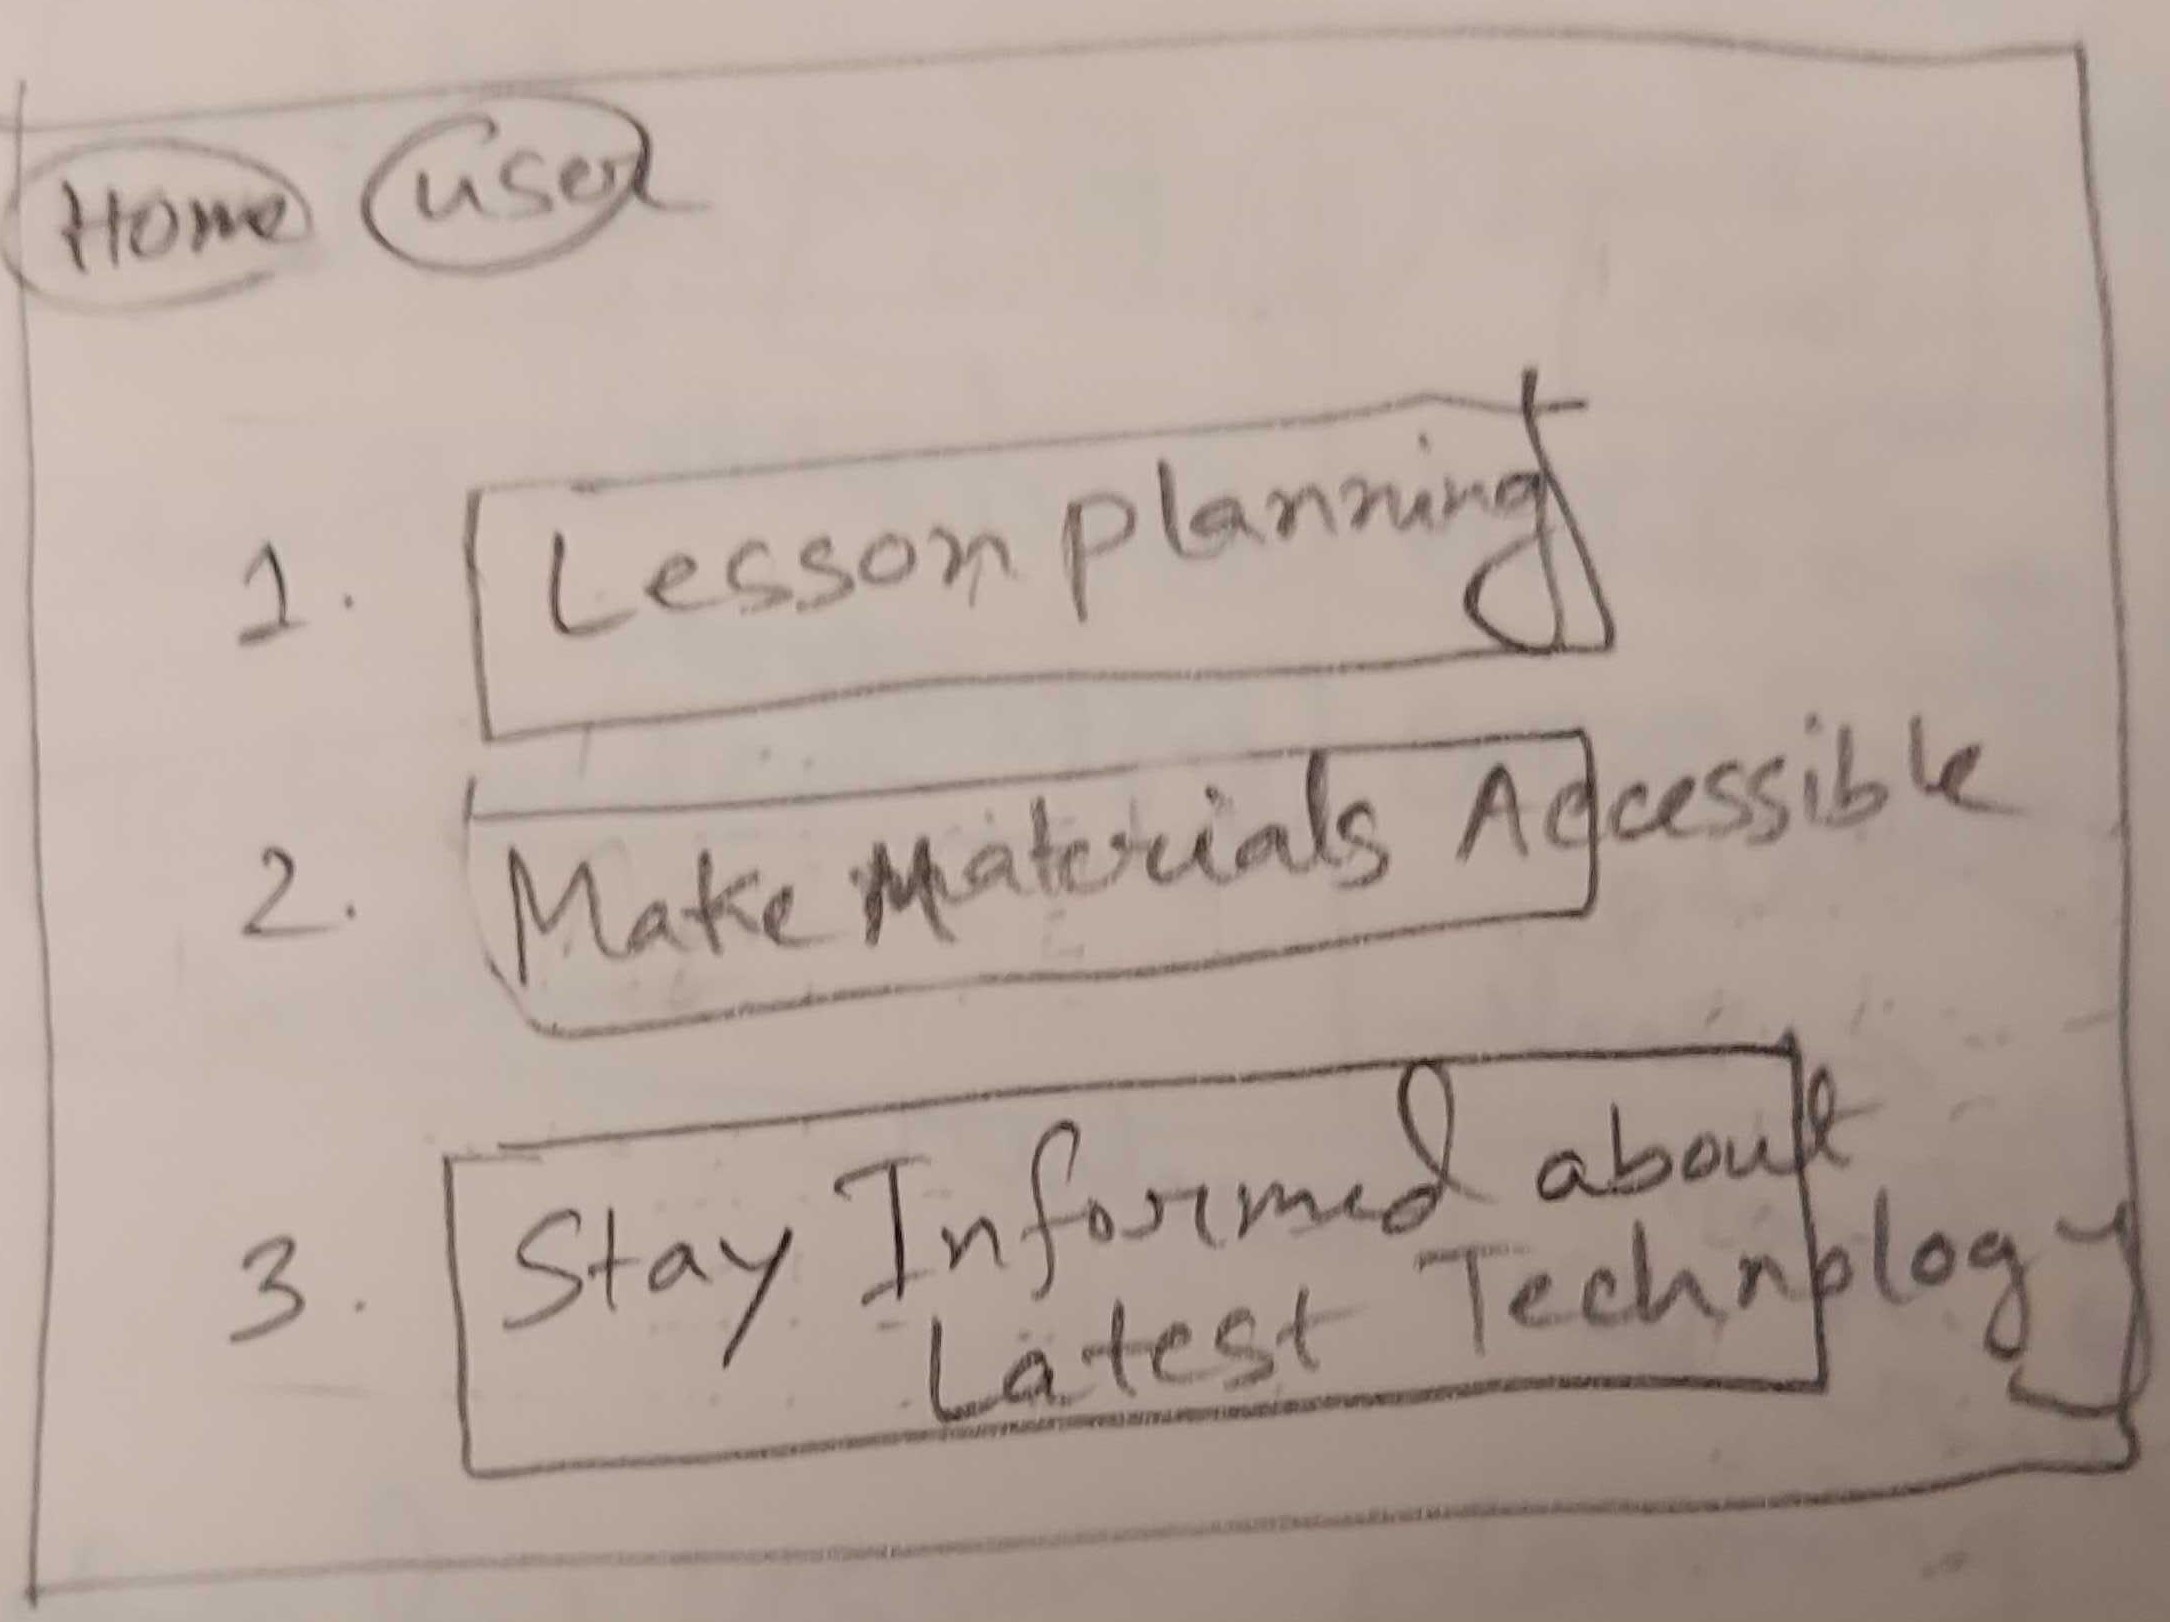 Home user
1. Lesson planning
2. Make Materials Accessible
3. Stay Informed about
Latest Technology